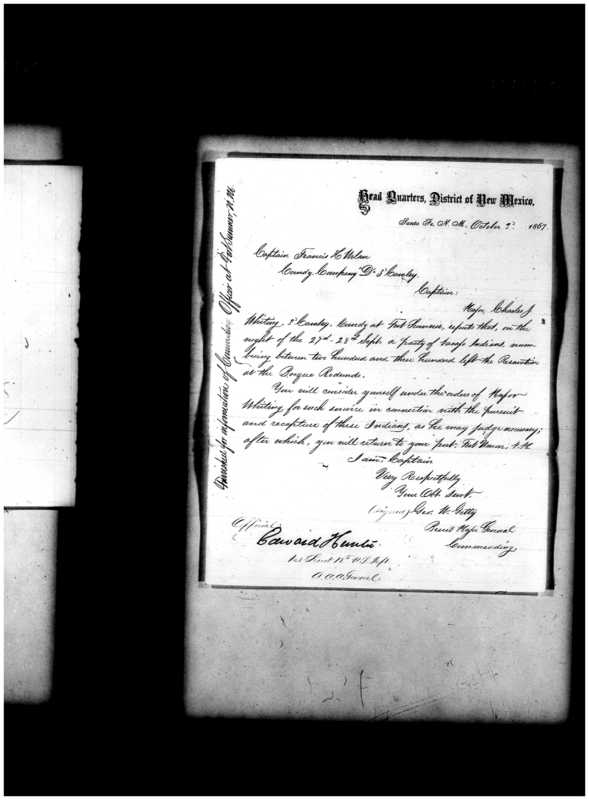 Head Quarters, District of New Mexico.
Santa Fe, N. M., October 2d 1867
Captain Francis H Wilson
Comdg Company "D" 3d Cavalry
Captain:
Major Charles J
Whiting, 3d Cavalry, Comdg at Fort Sumner, reports that, on the
night of the 27th - 28th Sept. a party of Navajo Indians num-
bering between two hundred and three hundred left the Reservation
at the Bosque Redondo.
You will consider yourself under the orders of Major
Whiting for such service in connection with the pursuit
and recapture of these Indians, as he may judge necessary;
after which, you will return to your post, Fort Union, N. M.
I am, Captain
Very Respectfully
Your Obt Servt.
(signed) Geo. W. Getty
Brevet Major General
Commanding
Official
Edward Hunter
1st Lieut 12th U.S. Inft.
A.A.A. General
Furnished for information of Commanding Officer at Fort Sumner, N. M.